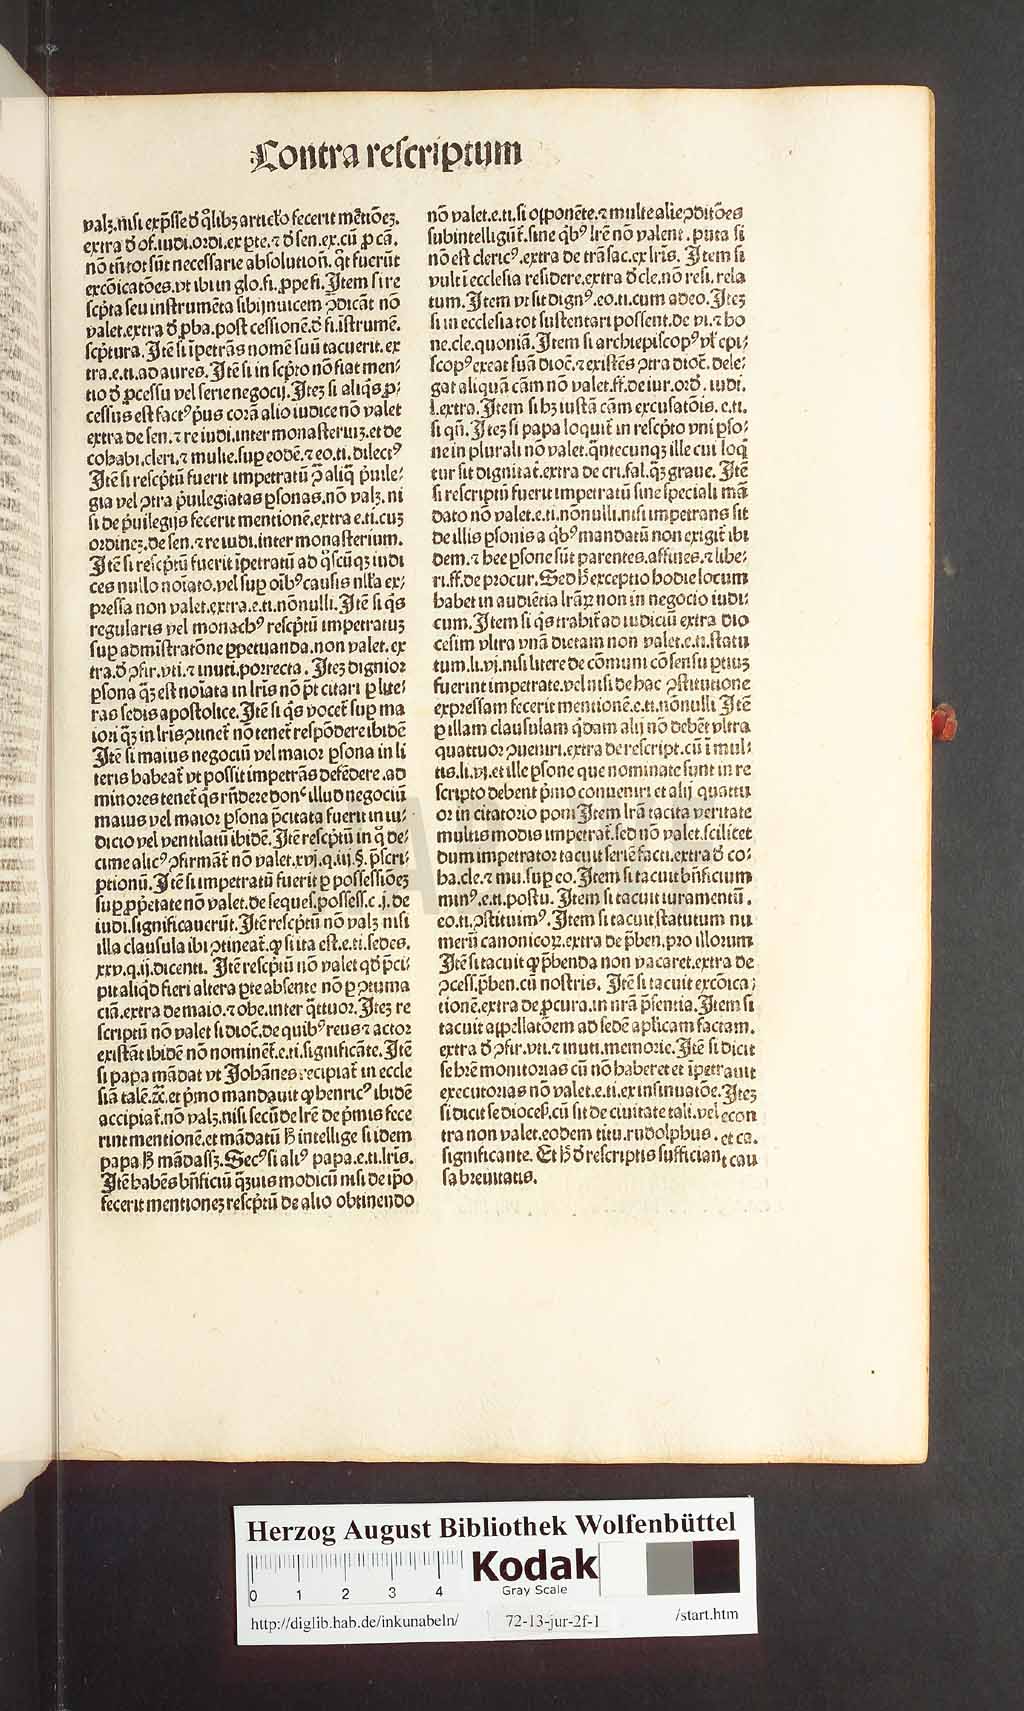 Contra rescriptum
valꝫ.nisi exp̄sse ꝺ̄ q̄libꝫ articl'o fecerit mētiōeꝫ.
extra ꝺ̄ of.iudi.ordi.ex pte.⁊ ꝺ̄ sen.ex.cū p cā.
nō tn̄ tot sūt necessarie absolutiōn̄. q̄t fuerūt
excōicatōes.vt ibi in glo.fi.ꝓpe fi. Item si re
scp̄ta seu instrumēta sibijnuicem ꝯdicāt nō
valet.extra ꝺ̄ ꝓba.post cessionē.ꝺ̄ fi.īstrumē.
scp̄tura. Itē si īpetrās nomē suū tacuerit.ex
tra.e.ti.ad aures. Itē si in scp̄to nō fiat men⸗
tio ꝺ̄ ꝓcessu vel serie negocij. Iteꝫ si aliq̄s ꝓ⸗
cessus est factꝰ p̄us corā alio iudice nō valet
extra de sen.⁊ re iudi.inter monasteriuꝫ.et de
cohabi.cleri.⁊ mulie.suꝑ eodē.⁊ eo.ti.dilectꝰ
Itē si rescp̄tū fuerit impetratū ꝯ̄ aliq̄ p̄uile⸗
gia vel ꝯtra p̄uilegiatas ꝑsonas.nō valꝫ. ni
si de p̄uilegijs fecerit mentionē.extra e.ti.cuꝫ
ordineꝫ.de sen.⁊ re iudi.inter monasterium.
Itē si rescp̄tū fuerit īpetratū ad q̄scūqꝫ iudi
ces nullo noīato.vel suꝑ oībꝰ causis nll'a ex⸗
pressa non valet.extra.e.ti.nōnulli. Itē si q̄s
regularis vel monachꝰ rescp̄tū impetratuꝫ
suꝑ admīstratōne ꝑpetuanda.non valet.ex
tra.ꝺ̄ ꝯfir.vti.⁊ inuti.porrecta. Iteꝫ dignior
ꝑsona q̄ꝫ est noīata in lr̄is nō pt̄ citari ꝑ lite⸗
ras sedis apostolice. Itē si q̄s vocet̄ suꝑ ma
iori q̄ꝫ in lr̄is ꝯtinet̄ nō tenet̄ respōdere ibidē
Itē si maius negociū vel maior ꝑsona in li
teris habeat̄ vt possit impetrās defēdere.ad
minores tenet̄ q̄s rn̄dere donᶜ illud negociū
maius vel maior ꝑsona p̄citata fuerit in iu⸗
dicio vel ventilatū ibidē. Itē rescp̄tū in q̄ de⸗
cime alicꝰ ꝯfirmāt̄ nō valet.xvj.q.iij.§. p̄scri⸗
ptionū. Itē si impetratū fuerit ꝑ possessiōeꝫ
suꝑ ꝓp̄etate nō valet.de seques.possess.c.j. de
iudi.significauerūt. Itē rescp̄tū nō valꝫ nisi
illa clausula ibi ꝯtineat̄.ꝙ si ita est.e.ti.sedes.
xxv.q.ij.dicenti. Itē rescp̄tū nō valet qd̄ p̄ci⸗
pit aliq̄d fieri altera ꝑte absente nō ꝑ ꝯtuma
ciā.extra de maio.⁊ obe.inter q̄ttuor. Iteꝫ re
scriptū nō valet si dioc̄.de quibꝰ reus ⁊ actor
existāt ibidē nō nominēt̄.e.ti.significāte. Itē
si papa mādat vt Johānes recipiat̄ in eccle
siā talē.ꝛc̄.et p̄mo mandauit ꝙ henricꝰ ibidē
accipiat̄.nō valꝫ.nisi secūde lr̄e de p̄mis fece
rint mentionē.et mādatū ꝧ intellige si idem
papa ꝧ mādassꝫ. Secꝰ si aliꝰ papa.e.ti.lr̄is.
Itē habēs bn̄ficiū q̄ꝫuis modicū nisi de ip̄o
fecerit mentioneꝫ rescp̄tū de alio obtinendo
nō valet.e.ti.si oꝓponēte.⁊ multe alie ꝯditōes
subintelligūt̄.sine q̄bꝰ lr̄e nō valent. puta si
nō est clericꝰ.extra de trāsac.ex lr̄is. Item si
vult ī ecclesia residere.extra ꝺ̄ cle.nō resi.rela
tum. Item vt sit dignꝰ.eo.ti.cum adeo. Iteꝫ
si in ecclesia tot sustentari possent.de vi.⁊ ho
ne.cle.quoniā. Item si archiepiscopꝰ vl' epi⸗
scopꝰ exeat suā dioc̄.⁊ existēs ꝯtra dioc̄. dele⸗
gat aliquā cām nō valet.ff.de iur.ord̄. iudi.
l.extra. Item si hꝫ iustā cām excusatōis. e.ti.
si qn̄. Iteꝫ si papa loquit̄ in rescp̄to vni ꝑso⸗
ne in plurali nō valet.q̄ntecunqꝫ ille cui loq̄
tur sit dignitat̄.extra de cri.fal.q̄ꝫ graue. Itē
si rescriptū fuerit impetratū sine speciali mā
dato nō valet.e.ti.nōnulli.nisi impetrans sit
de illis ꝑsonis a q̄bꝰ mandatū non exigit̄ ibi
dem.⁊ hee ꝑsone sūt parentes.affines.⁊ libe⸗
ri.ff.de procur. Sed ꝧ exceptio hodie locum
habet in audiētia lr̄aꝝ non in negocio iudi⸗
cum. Item si q̄s trahit̄ ad iudiciū extra dio
cesim vltra vnā dietam non valet.e.ti.statu
tum.li.vj.nisi litere de cōmuni cōsensu ꝑtiuꝫ
fuerint impetrate.vel nisi de hac ꝯstitutione
expressam fecerit mentionē.e.ti.nōnulli Itē
ꝑ illam clausulam q̄dam alij nō debēt vltra
quattuor ꝯueniri.extra de rescript.cū ī mul⸗
tis.li.vj.et ille ꝑsone que nominate sunt in re
scripto debent p̄mo conueniri et alij quattu
or in citatorio poni Item lr̄a tacita veritate
multis modis impetrat̄.sed nō valet.scilicet
dum impetrator tacuit seriē facti.extra ꝺ̄ co⸗
ha.cle.⁊ mu.suꝑ eo. Item si tacuit bn̄ficium
minꝰ.e.ti.postu. Item si tacuit iuramentū.
eo.ti.ꝯstituimꝰ. Item si tacuit statutum nu
merū canonicoꝝ.extra de p̄ben.pro illorum
Itē si tacuit ꝙ p̄benda non vacaret.extra de
ꝯcess.p̄ben.cū nostris. Itē si tacuit excōica⸗
tionē.extra de ꝓcura.in nr̄a p̄sentia. Item si
tacuit appellatōem ad sedē aplicam factam.
extra ꝺ̄ ꝯfir.vti.⁊ inuti.memorie. Itē si dicit
se hr̄e monitorias cū nō haberet et īpetrauit
executorias nō valet.e.ti.ex insinuatōe. Iteꝫ
si dicit se dioces̄.cū sit de ciuitate tali.vel econ
tra non valet.eodem titu.rudolphus. et ca.
significante. Et ꝧ ꝺ̄ rescriptis sufficiant cau
sa breuitatis.
Herzog August Bibliothek Wolfenbüttel
Kodak
Gray Scale
0 1 2 3 4
http://diglib.hab.de/inkunabeln/ 72-13-jur-2f-1 /start.htm